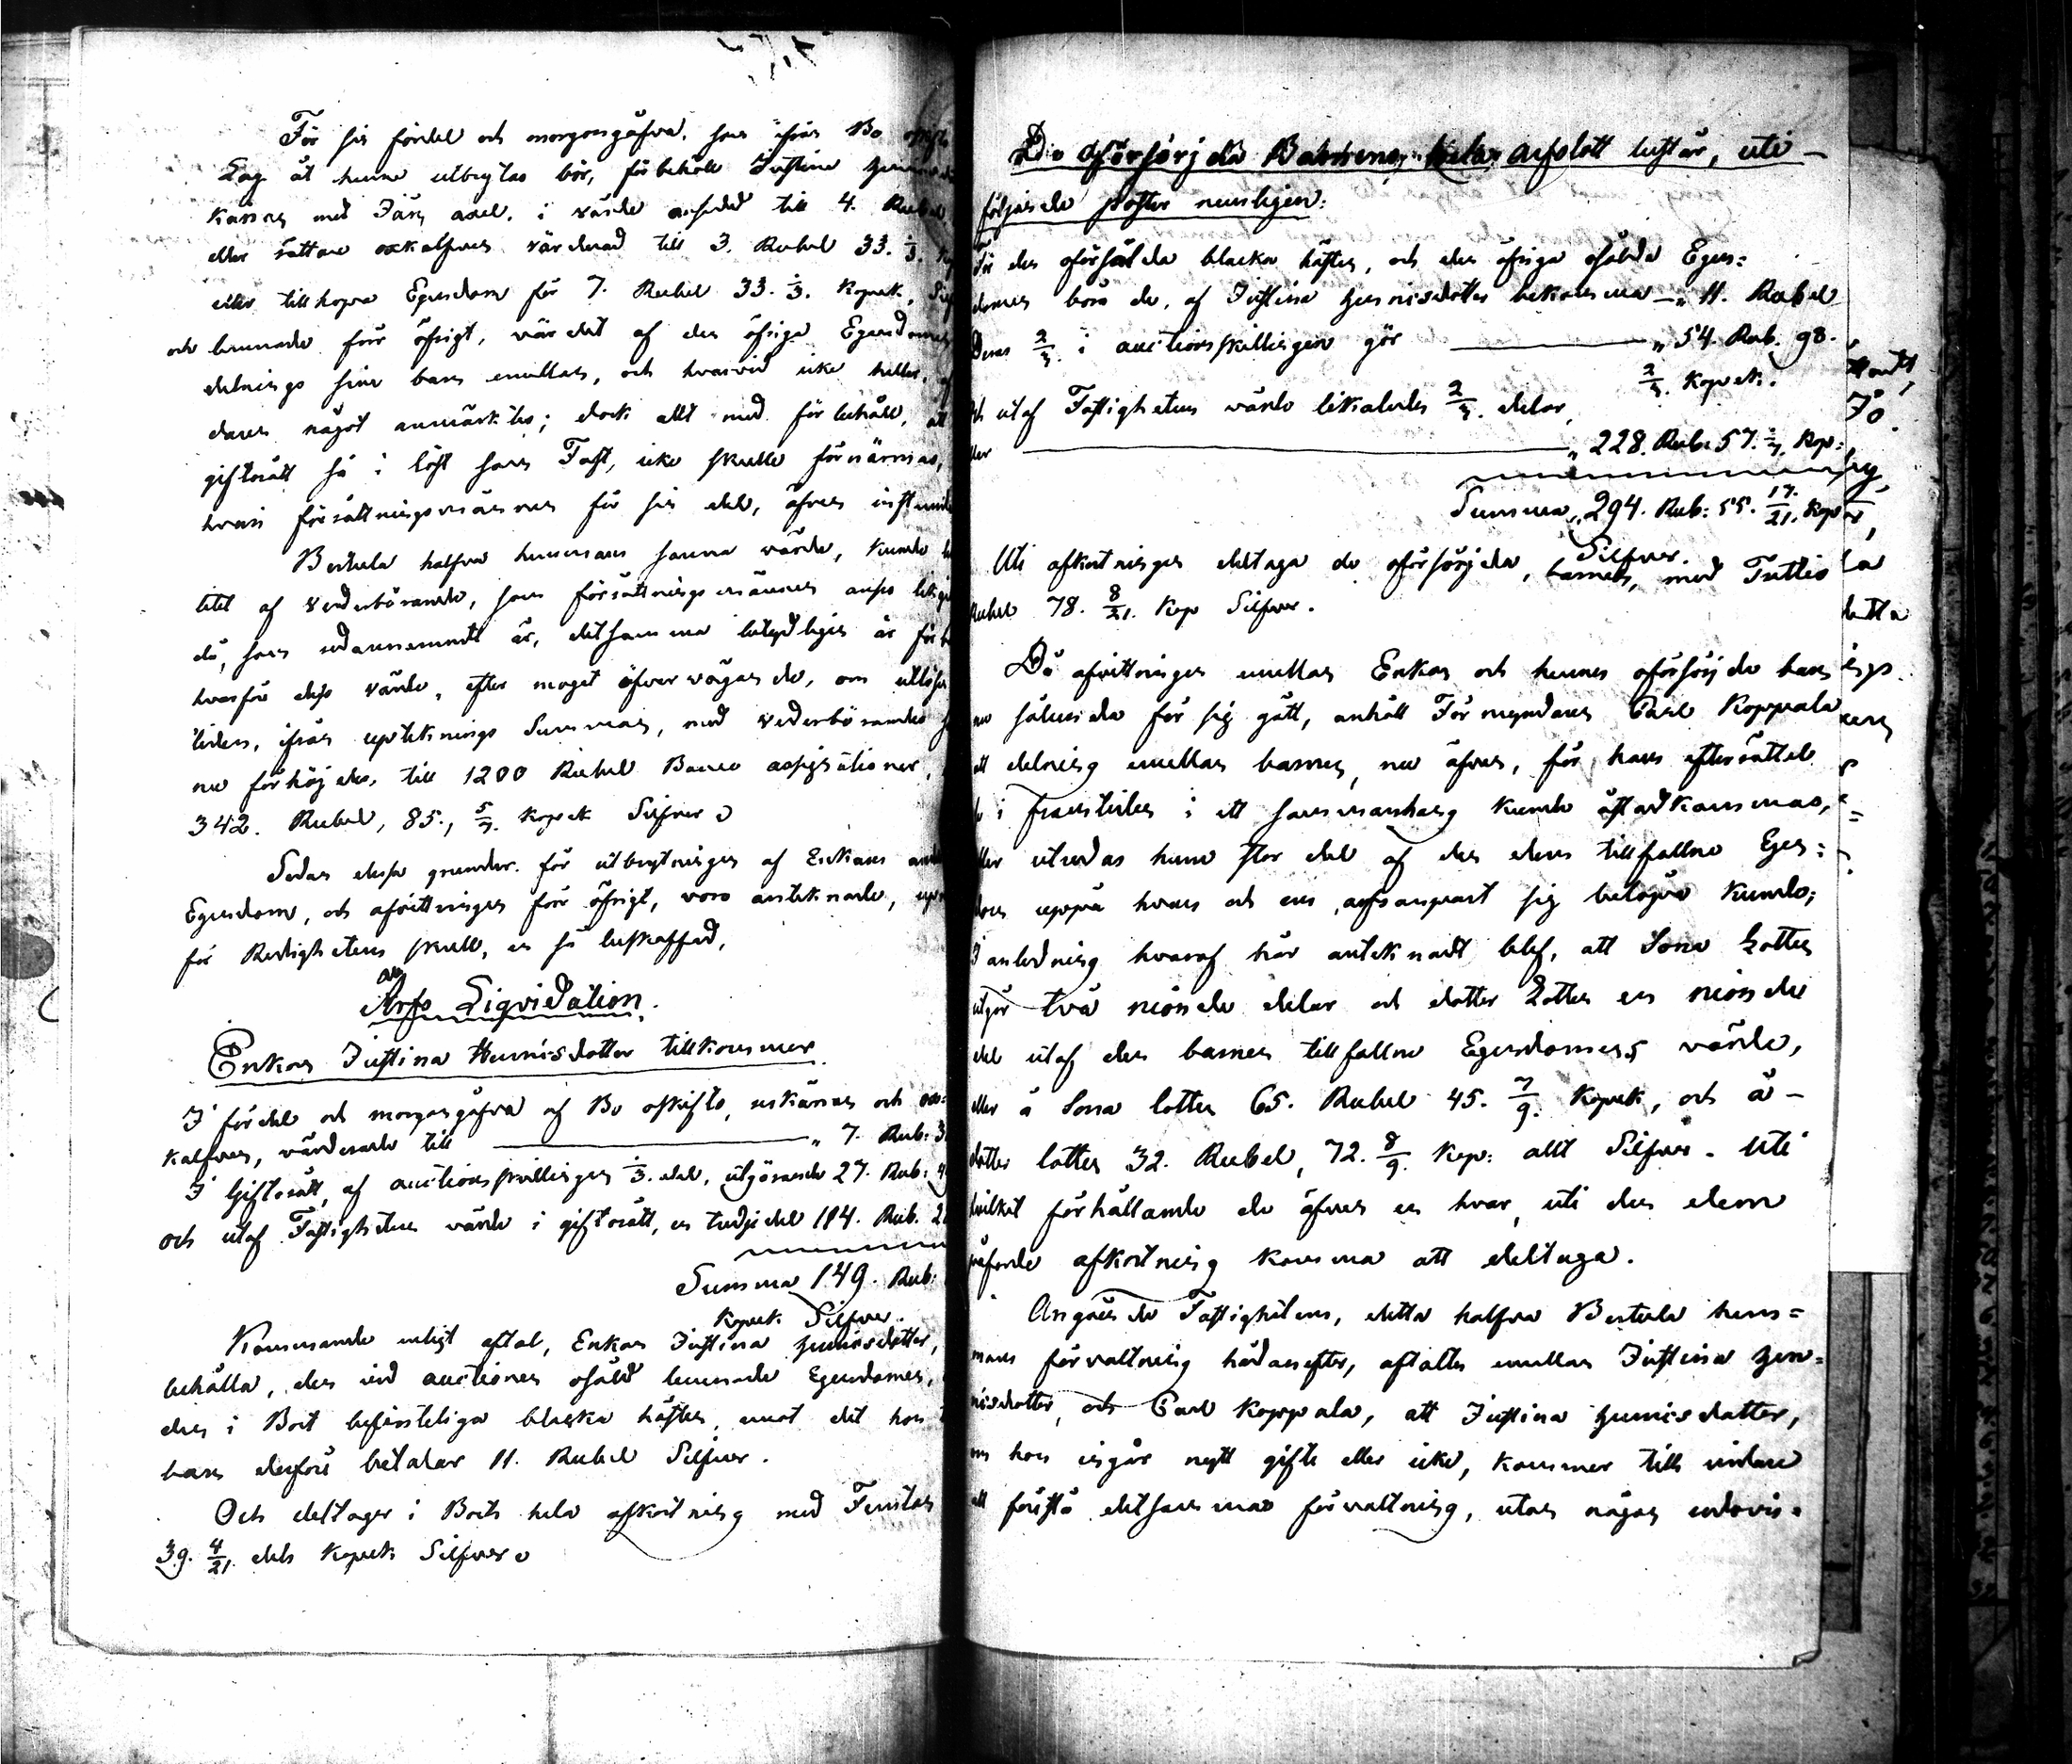 För sin fördel och morgongåfva, som ifrån Bo oskifto
Lag åt henne utbrytas bör, förbehöll Justina Henrics
Kärran med Järn axel, i värde ansedd till 4. Rubel
eller röttare oxkalfven värderad till 3. Rubel 33. 1/3. Kop
eller tillhopa Egendom för 7. Rubel 33. 1/3. Kopek, Silf
och lemnade för öfrigt, värdet af den öfriga Egendomen
delnings sine barn emellan, och hvarvid icke heller, af
daren något anmärktes; dock allt med förbehåll, att
giftorätt så i löst som Fast, icke skulle förnärmas,
hvari försättningsmännen för sin del, äfven instämde
Bertula halfva hemmans sanna värde, kunde
tilet af vederbörande, som försättningsmännen anses
då, som ofvannemndt är, detsamma
hvarföre dess värde, efter moget öfvervägande, om utlösen
tiden, ifrån upteknings Summan, med vederbörandes
nu förhöjdes, till 1200 Rubel Banco assignationer,
342. Rubel, 85., 5/7. Kopek Silfver
Sedan dessa grunder för utbrytningen af Enkans andel
Egendom, och afvittningen för öfrigt, voro anteknade, upr
för Redighetens skull, en så beskaffad,
Arfs Liqvidation.
Enkan Justina Henricsdotter tillkommer
I fördel och morgongåfva af Bo oskifto, kärran och ox=
kalfven, värderade till — „ 7. Rub: 3
I Giftorätt, af auctions skillingen 1/3. del, utgörande 27. Rub: 4
och utaf Fastighetens värde i giftorätt, en tredjedel 114. Rub. 2
Summa 149. Rub:
Kopek Silfver.
Kommande enligt aftal, Enkan Justina Henricsdotter,
behålla, den vid auctionen osåld lemnade Egendomen,
den i Boet befinteliga blacka hästen, emot det hon
barn derföre betalar 11. Rubel Silfver.
Och deltager i Boets hela afkortning med Trettio
39. 4/21. dels Kopek Silfver
De oförsörjda Barnens hela arfslott består, uti —
följande poster nemligen:
För den oförsålda blacka hästen, och den öfriga osålda Egen=
domen böra de, af Justina Henricsdotter bekomma —„ 11. Rubel
Deras 2/3. i auctionsskillingen gör — „ 54. Rub. 98.
2/3. Kopek.
Och utaf Fastighetens värde likaledes 2/3. delar,
eller — „ 228. Rub. 57. 1/7. Kop:
Summa „ 294. Rub: 55. 17/21. Kop
Silfver.
Uti afkortningen deltaga de oförsörjda, barnen, med Trettio
Rubel 78. 8/21. Kop Silfver.
Då afvittningen emellan Enkan och hennes oförsörjda barn
nu sålunda för sig gått, anhöll Förmyndaren Carl Koppala
att delning emellan barnen, nu äfven, för
i framtiden i ett sammanhang kunde åstadkommas,
eller utredas huru stor del af den dem tillfallne Egen=
dom uppå hvar och en sig belöpa kunde;
I anledning hvaraf här anteknadt blef, att Sona Lotten
utgör två nionde delar och dotter Lotten en nionde
del utaf den barnen tillfallne Egendomens värde,
eller à Sona lotten 65. Rubel 45. 7/9. Kopek, och à —
dotter lotten 32. Rubel, 72. 8/9. Kop: allt Silfver. Uti
hvilket förhållande de äfven en hvar, uti den dem
påförde afkortning komma att deltaga.
Angående Fastighetens, detta halfva Bertula hem=
mans förvaltning hädanefter, aftaltes emellan Justina Hen=
ricsdotter, och Carl Koppala, att Justina Henricsdotter,
om hon ingår nytt gifte eller icke, kommer till vidare
att förestå detsammas förvaltning, utan någon redovis=